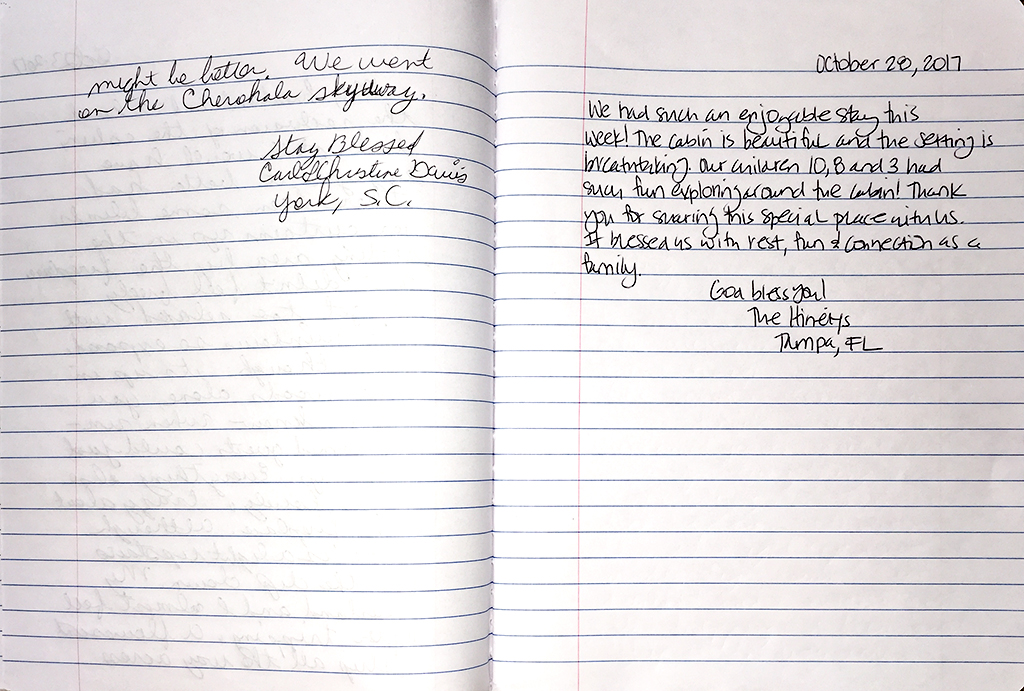 might be better. We went
on the Cherohala skyway.
Stay Blessed
Carl & Christine Davis
York, S.C.
October 28, 2017
We had such an enjoyable stay this
week! The cabin is beautiful and the setting is
breathtaking. Our children 10, 8 and 3 had
such fun exploring around the cabin! Thank
you for sharing this special place with us.
It blessed us with rest, fun & connection as a
family.
God bless you!
The
Tampa, FL